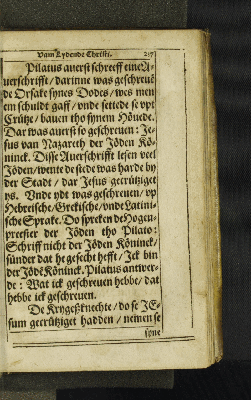 Vam Lydende Christi. 237
Pilatus auerst schreeff eine A-
uerschrifft / darinne was geschreuē
de Orsake synes Dodes / wes men
em schuldt gaff / vnde settede se vpt
Crütze / bauen tho synem Höuede.
Dar was auerst so geschreuen : Je-
sus van Nazareth der Jöden Kö-
ninck. Disse Auerschrifft lesen veel
Jöden / wente de stede was harde by
der Stadt / dar Jesus gecrützigt
ys. Vnde ydt was geschreuen / vp
Hebreische / Grekische / vnde Latini-
sche Sprake. Do spreken de Hogen-
preester der Jöden tho Pilato :
Schriff nicht der Jöden Köninck /
sünder dat he gesecht hefft / Ick bin
der Jödē Köninck. Pilatus antwer-
de : Wat ick geschreuen hebbe / dat
hebbe ick geschreuen.
De Krygeßknechte / do se JE-
sum gecrütziget hadden / nemen se
syne